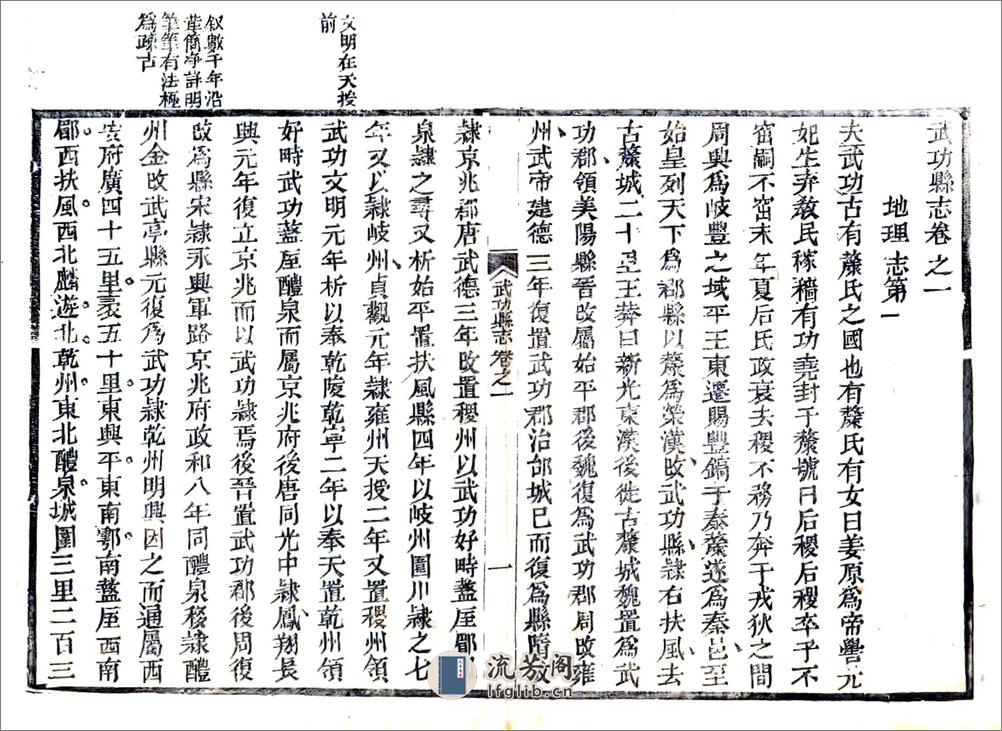 武功縣志卷之一
地理志第一
夫武功古有斄氏之國也有斄氏有女曰姜原為帝嚳元
妃生弃教民稼穡有功堯封于斄號曰后稷后稷卒子不
窋嗣不窋末年夏后氏政衰去稷不務乃奔于戎狄之間
周興為岐豐之域平王東遷賜豐鎬于秦斄遂為秦邑至
始皇列天下為郡縣以斄為
漢改武功縣隸右扶風去
古斄城二十里王莽曰新光東漢後徙古斄城魏置為武
功郡領美陽縣晉改屬始平郡後魏復為武功郡周改雍
州武帝建德三年復置武功郡治邰城已而復為縣隋改
武功縣志
卷之一
一
隸京兆郡唐武德三年改置稷州以武功好畤盩厔郿
泉隸之尋又析始平置扶風縣四年以岐州圍川隸之七
年又以隸岐州貞觀元年隸雍州天授二年又置稷州領
武功文明元年析以奉乾陵乾寧二年以奉天置乾州領
好畤武功盩厔醴泉而屬京兆府後唐同光中隸鳳翔長
興元年復立京兆而以武功隸焉後晉置武功郡後周復
改為縣宋隸永興軍路京兆府政和八年同醴泉移隸醴
州金改武亭縣元復為武功隸乾州明興因之而通屬西
安府廣四十五里袤五十里東興平東南鄠南盩厔西南
郿西扶風西北麟遊北乾州東北醴泉城圍三里二百三
文明在天授
前
叙數千年沿
革簡净詳明
筆筆有法極
為疎古
流芳阁
lfglib.cn